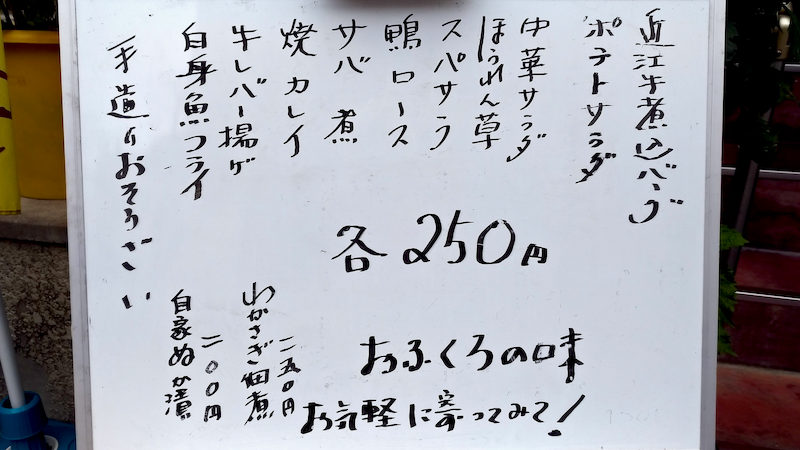 近江牛煮込バーグ
ポテトサラダ
中華サラダ
ほうれん草
スパサラ
鴨ロース
サバ煮
焼カレイ
牛レバー揚ゲ
自身魚フライ
手造りおそうざい
各250円
わかさぎ佃煮
二五〇円
自家ぬか漬
二〇〇円
おふくろの味
お気軽に寄ってみて!